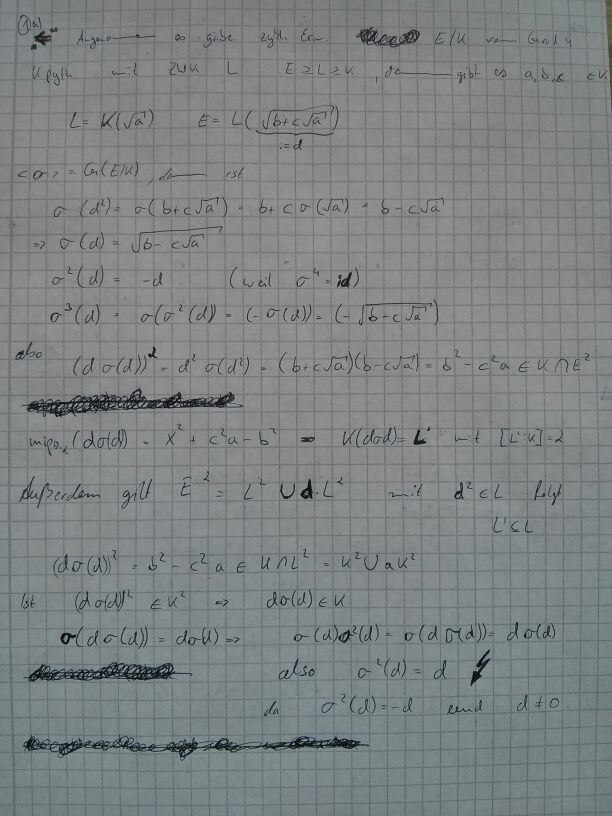 ① a)
"←" Angeno es gäbe zykl. Erw. E/K vom Grad 4
K pyth mit ZWK L E ≥ L ≥ K, da gibt es a, b, c ∈ K
L = K(√a) E = L(√(b+c√a)) := d
<σ> = Gal(E/K), da ist
σ(d²) = σ(b+c√a) = b + c σ(√a) = b - c√a
⇒ σ(d) = √(b - c√a)
σ²(d) = -d (weil σ⁴ = id)
σ³(d) = σ(σ²(d)) = (-σ(d)) = (-√(b - c√a))
also (d σ(d))² = d² σ(d²) = (b+c√a)(b-c√a) = b² - c²a ∈ K ∩ E²
mipo_K(dσ(d)) = X² + c²a - b² ⇒ K(dσd) = L' mit [L':K] = 2
Außerdem gilt E² = L² ∪ d·L² mit d² ∈ L folgt
L' ⊆ L
(dσ(d))² = b² - c²a ∈ K ∩ L² = K² ∪ aK²
Ist (dσ(d))² ∈ K² ⇒ dσ(d) ∈ K
σ(dσ(d)) = dσ(d) ⇒ σ(d)σ²(d) = σ(dσ(d)) = dσ(d)
also σ²(d) = d ↯
da σ²(d) = -d und d ≠ 0.